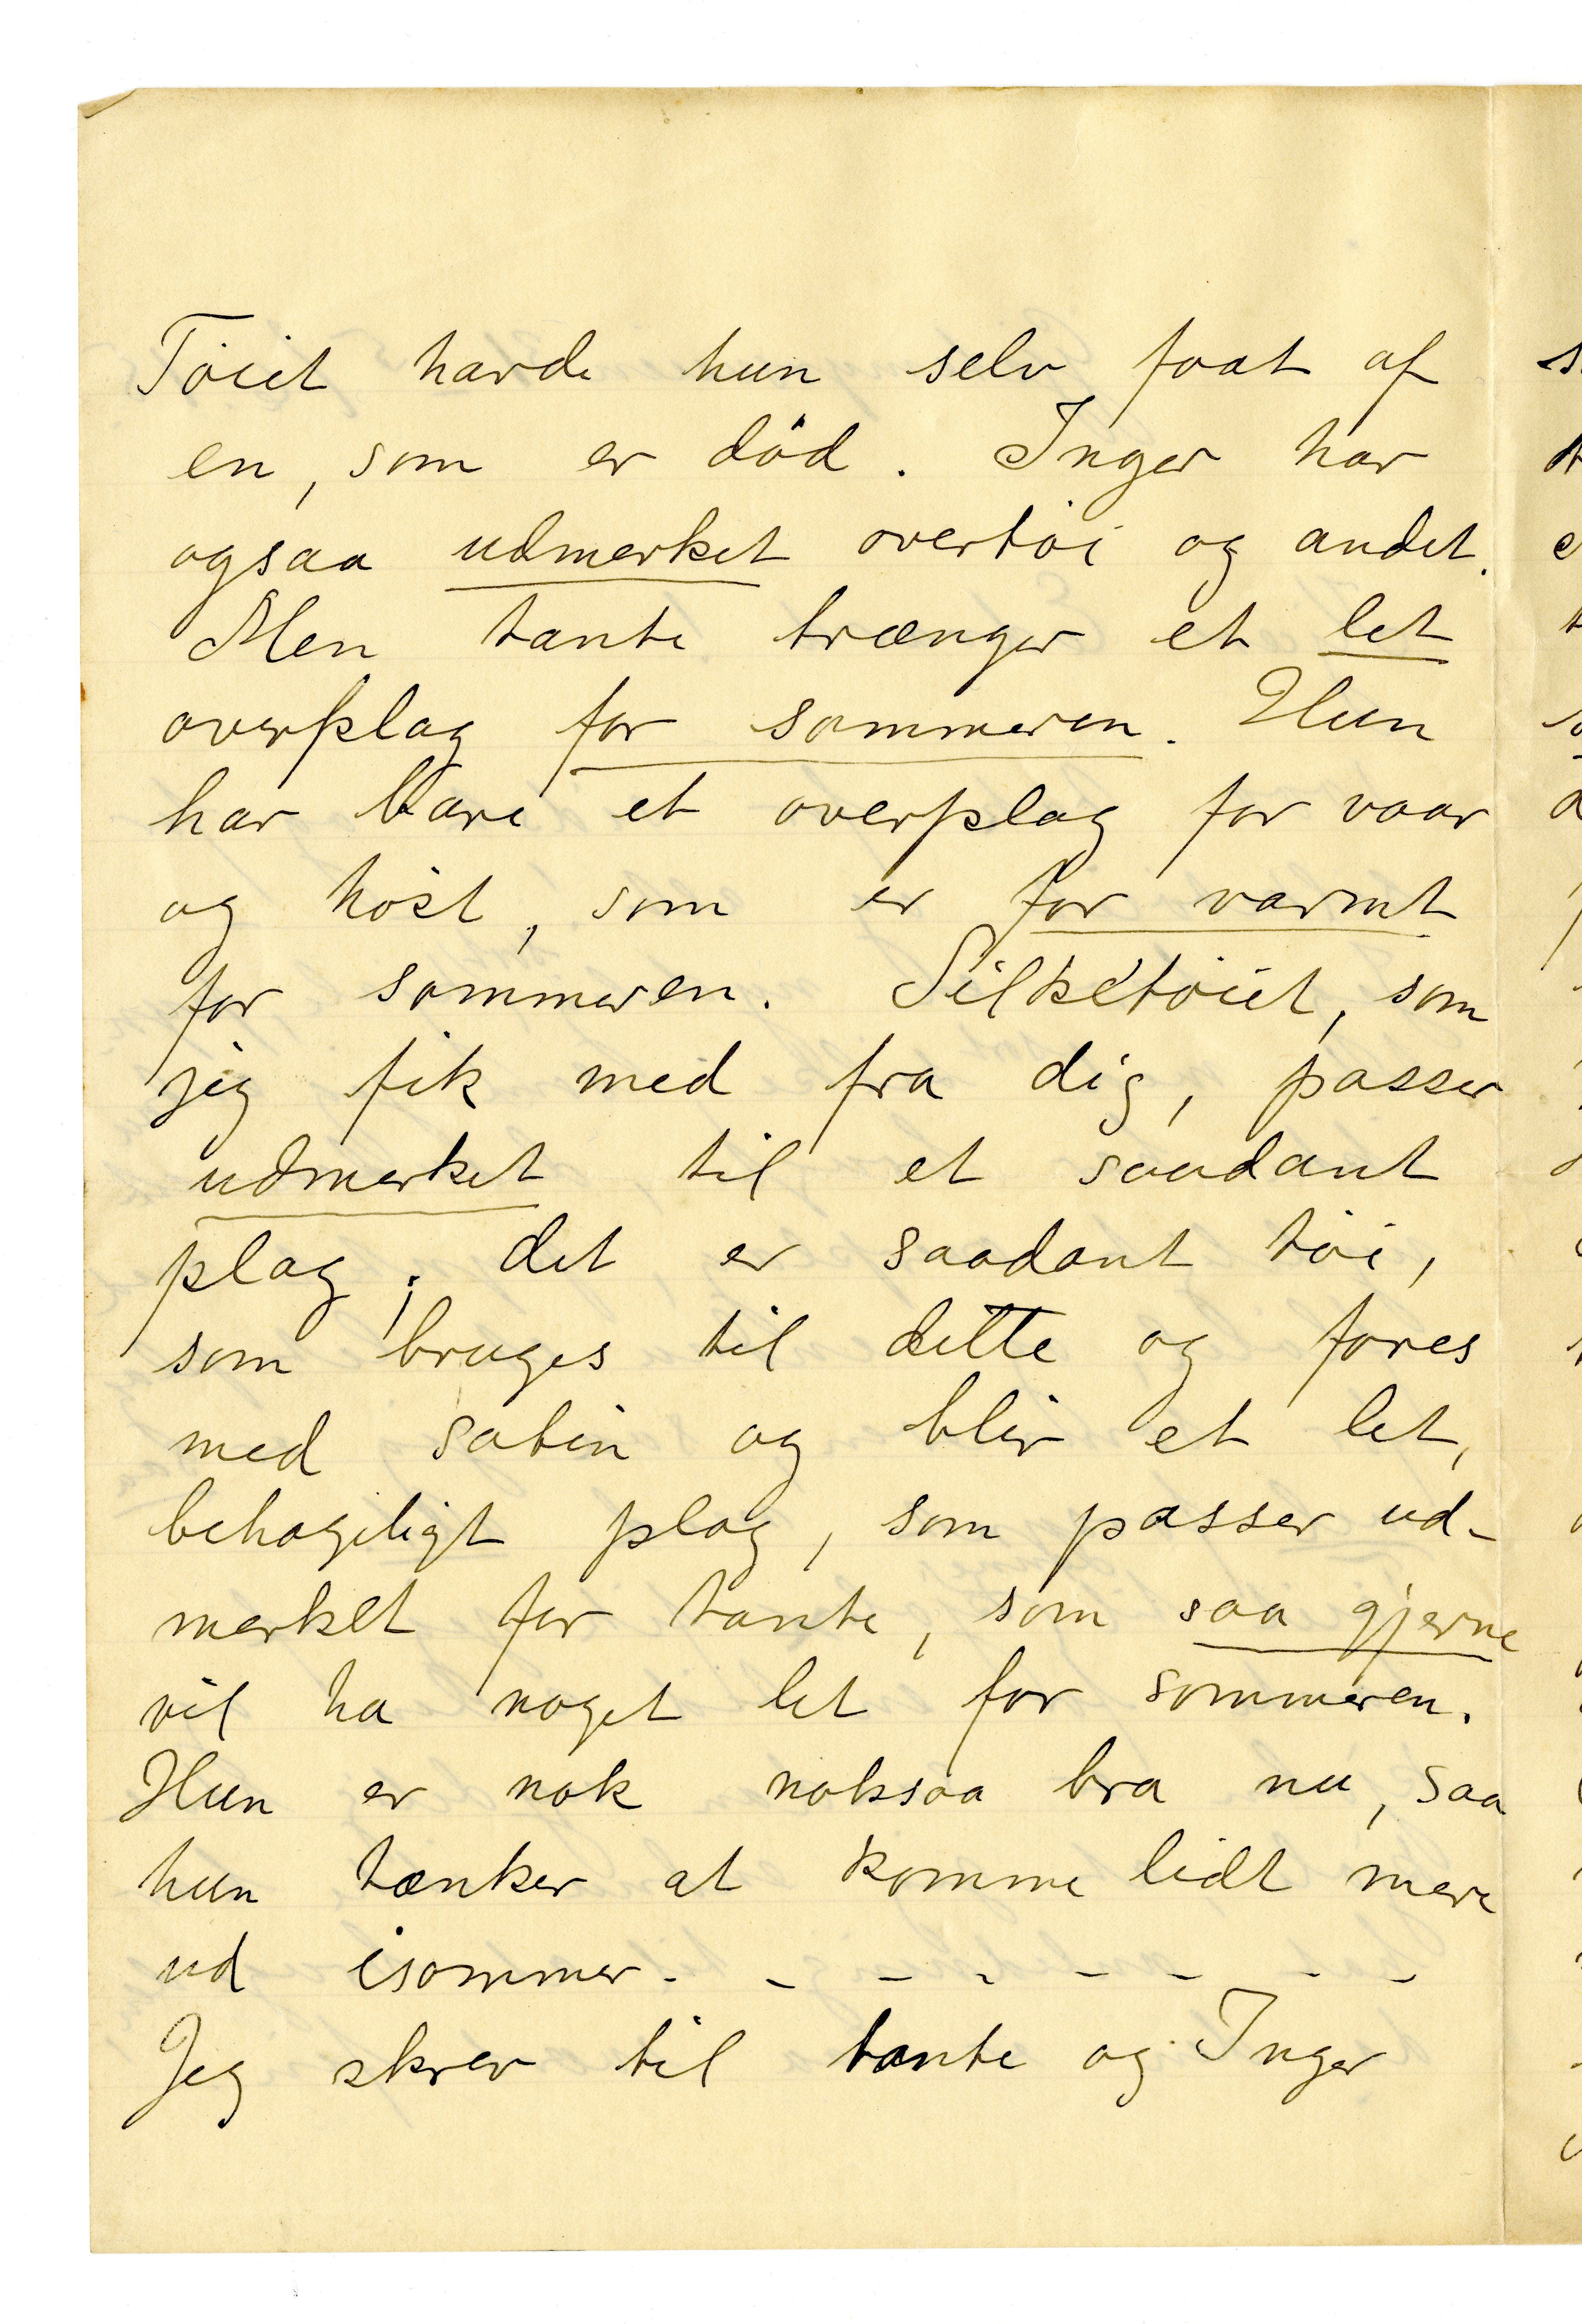 Tøiet havde hun selv faat af
en, som er død. Inger har
ogsaa udmerket overtøi og andet.
Men tante trænger et let
overplag for sommeren. Hun
har bare et overplag for vaar
og høst, som er for varmt
for sommeren. Silketøiet, som
jeg fik med fra dig, passer
udmerket til et saadant
plag; det er saadant tøi,
som bruges til dette og fores
med satin og blir et let,
behageligt plag, som passer ud-
merket for tante, som saa gjerne
vil ha noget let for sommeren.
Hun er nok noksaa bra nu, saa
hun tænker at komme lidt mere
ud isommer. - - - - - - -
Jeg skrev til tante og Inger